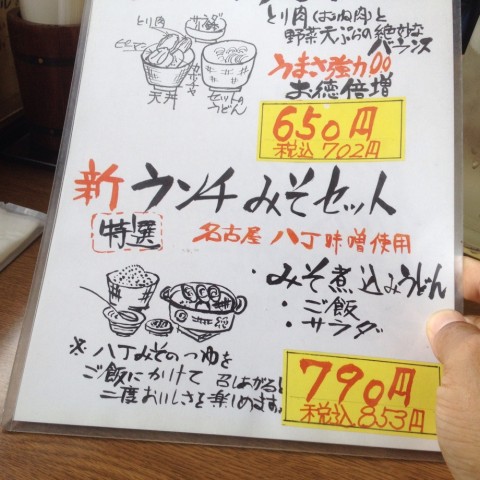 とり肉
ピーマン
天丼
セットの
うどん
とり肉(むね肉)と
野菜天ぷらの絶妙な
バランス
うまさ強力
お徳倍増
650円
税込702円
新ウンチみそセット
特選
名古屋八丁味噌使用
・みそ煮込みうどん
・ご飯
・サラダ
※八丁みそのつゆを
ご飯にかけて召しあがると
二度おいしさを楽しめます。
790円
税込853円